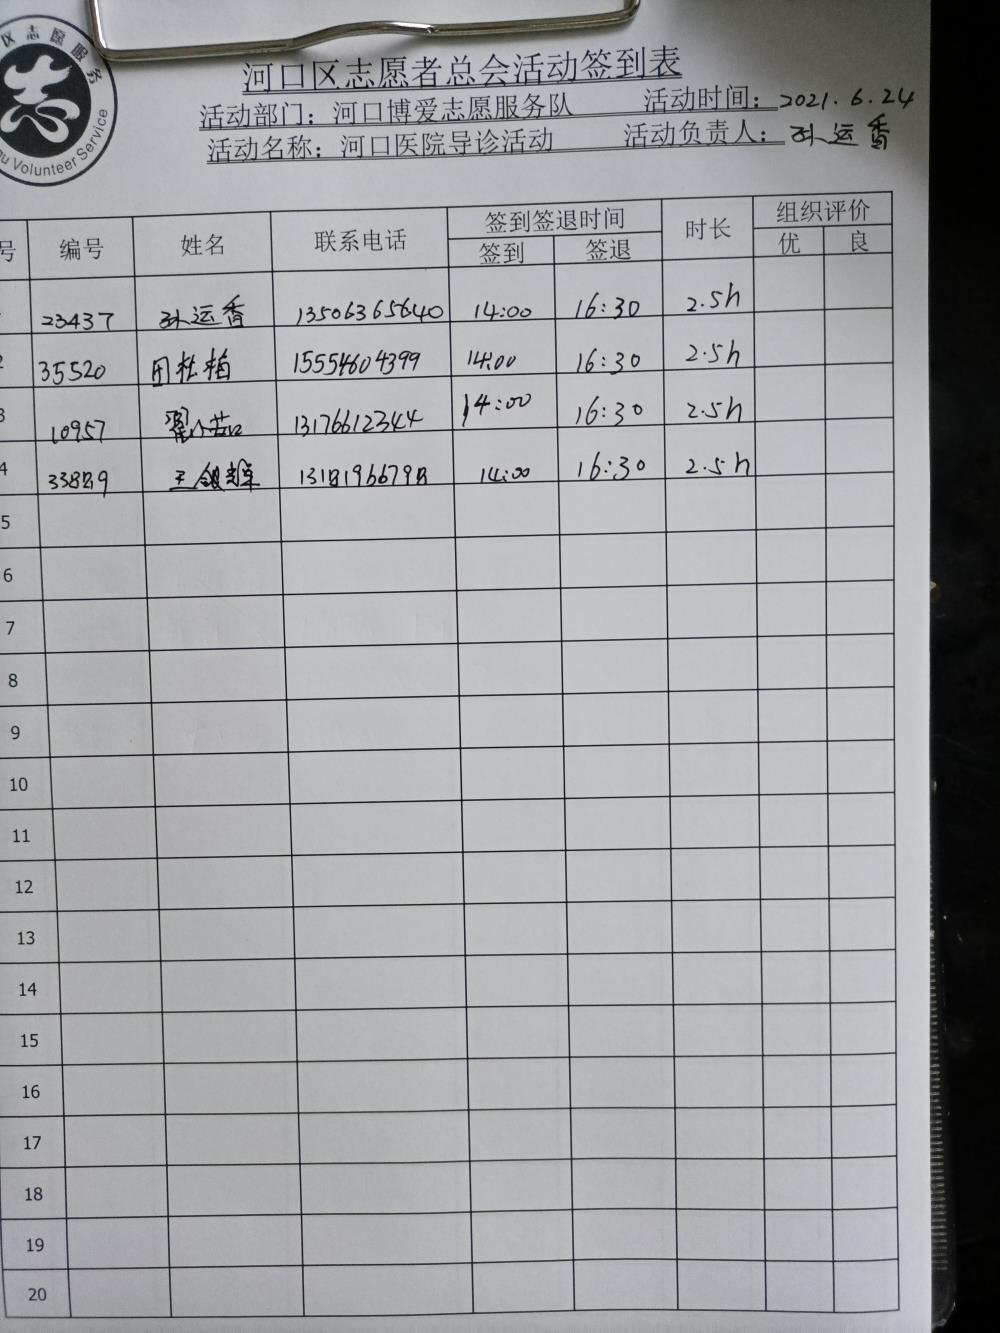 区志愿服务
志
ou Volunteer Service
河口区志愿者总会活动签到表
活动部门：河口博爱志愿服务队 活动时间：2021.6.24
活动名称：河口医院导诊活动 活动负责人：孙运香
号 编号 姓名 联系电话 签到签退时间 时长 组织评价
签到 签退 优 良
23437 孙运香 13506365640 14:00 16:30 2.5h
2 35520 15554604399 14:00 16:30 2.5h
3 10957 13176612344 14:00 16:30 2.5h
4 14:00 16:30 2.5h
5
6
7
8
9
10
11
12
13
14
15
16
17
18
19
20